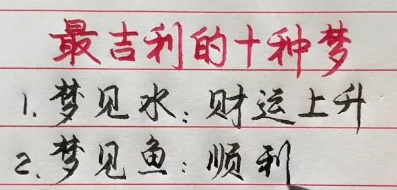 最吉利的十种梦
1.梦见水：财运上升
2.梦见鱼：顺利